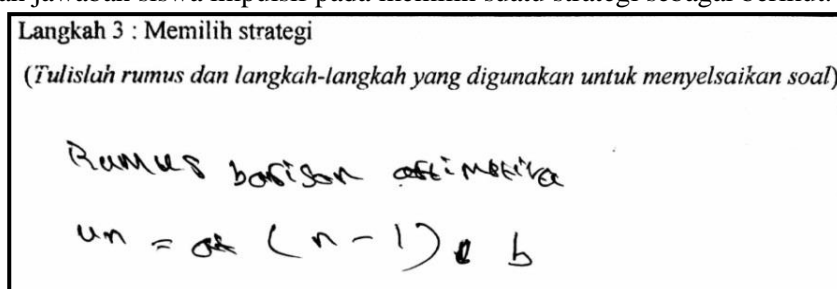 Langkah 3 : Memilih strategi
(Tulislah rumus dan langkah-langkah yang digunakan untuk menyelsaikan soal)
Rumus barisan aritmetika
un = a (n - 1) b